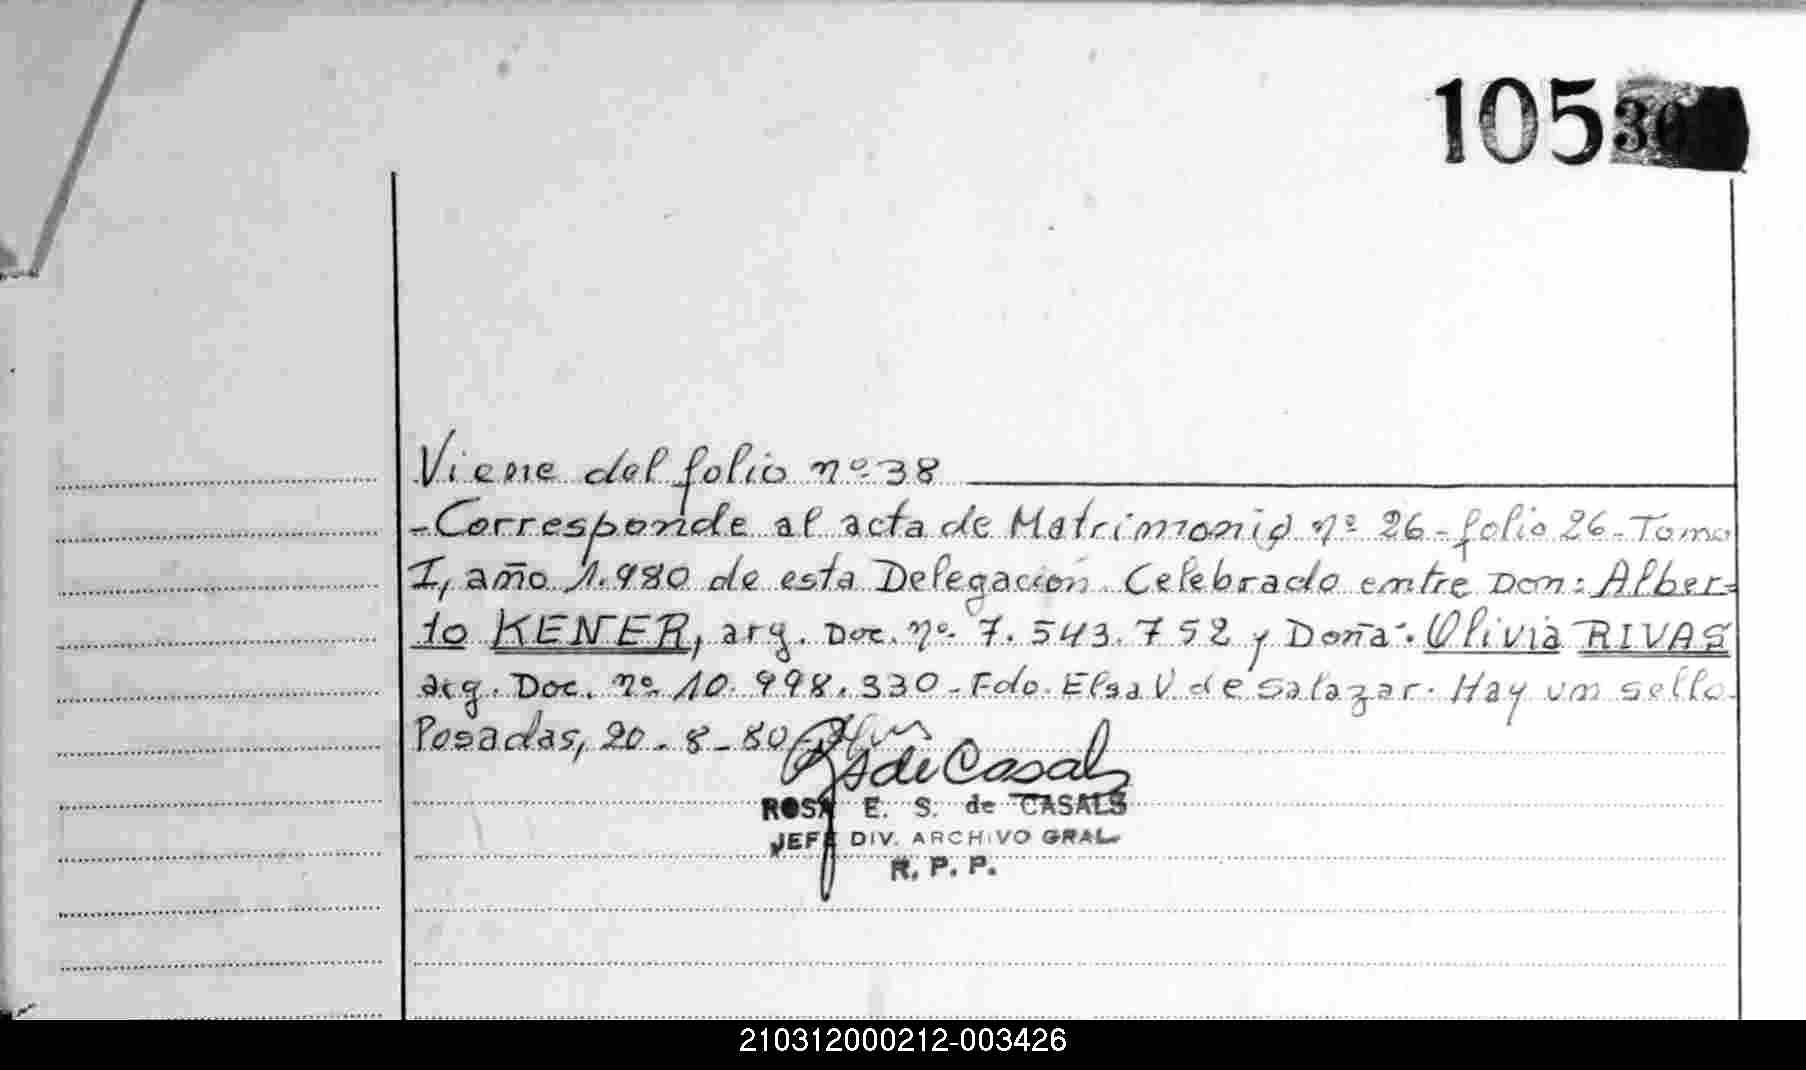 105
Viene del folio nº 38
-Corresponde al acta de Matrimonio nº 26-folio 26-Tomo
I, año 1.980 de esta Delegación. Celebrado entre Don: Alber-
to KENER, arg. Doc. nº 7.543.752 y Doña: Olivia RIVAS
arg. Doc. nº 10.998.330-Fdo. Elsa V de Salazar. Hay un sello.
Posadas, 20-8-80
ROSA E. S. de CASALS
JEFE DIV. ARCHIVO GRAL
R. P. P.
210312000212-003426